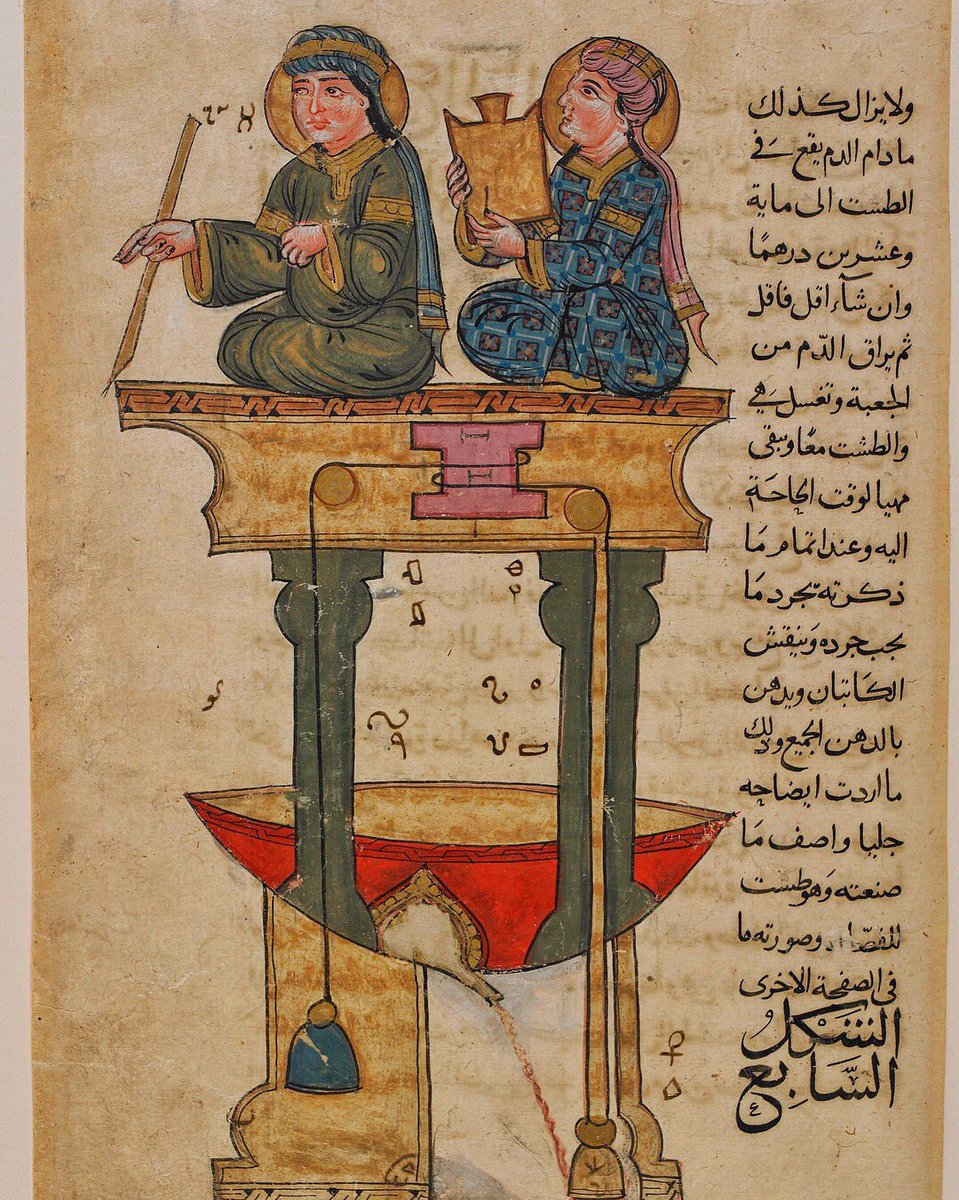 ولا يزال كذلك
ما دام الدم يقع في
الطست الى ماية
وعشرين درهمًا
وان شآء اقل فاقل
ثم يراق الدّم من
الجعبة وتغسل هي
والطشت معًا ويبقى
مهيا لوقت الحاجَة
اليه وعند اتمام مَا
ذكرته يجرد مَا
يجب جرده وينقش
الكَاتبان ويدهن
بالدهن الجميع وذلك
ما اردت ايضاحه
جليا واصف مَا
صنعته وَهو طست
للفصّاد وصورته ما
في الصفحة الاخرى
الشكل
السَّابع